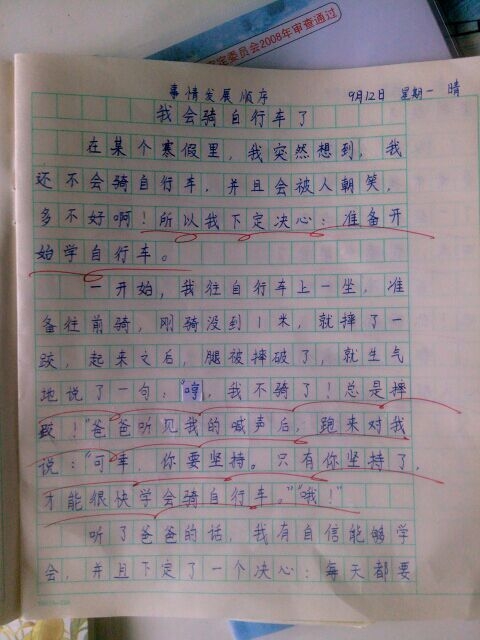 委员会2008年审查通过
事情发展顺序 9月12日 星期一 晴
我会骑自行车了
在某个寒假里，我突然想到，我
还不会骑自行车，并且会被人朝笑，
多不好啊！所以我下定决心：准备开
始学自行车。
一开始，我往自行车上一坐，准
备往前骑，刚骑没到1米，就摔了一
跤，起来之后，腿被摔破了，就生气
地说了一句：“哼，我不骑了！总是摔
跤！”爸爸听见我的喊声后，跑来对我
说：“可車，你要坚持。只有你坚持了，
才能很快学会骑自行车。”“哦！”
听了爸爸的话，我有自信能够学
会，并且下定了一个决心：每天都要